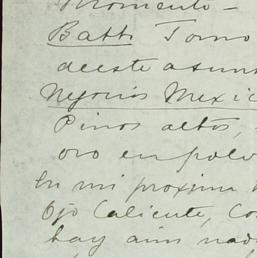 Momento -
Batti Tomo
de este asun
Negocios Mexic
Pinos altos,
oro en polv
En mi proxima
Ojo Caliente, Co
hay aun nad